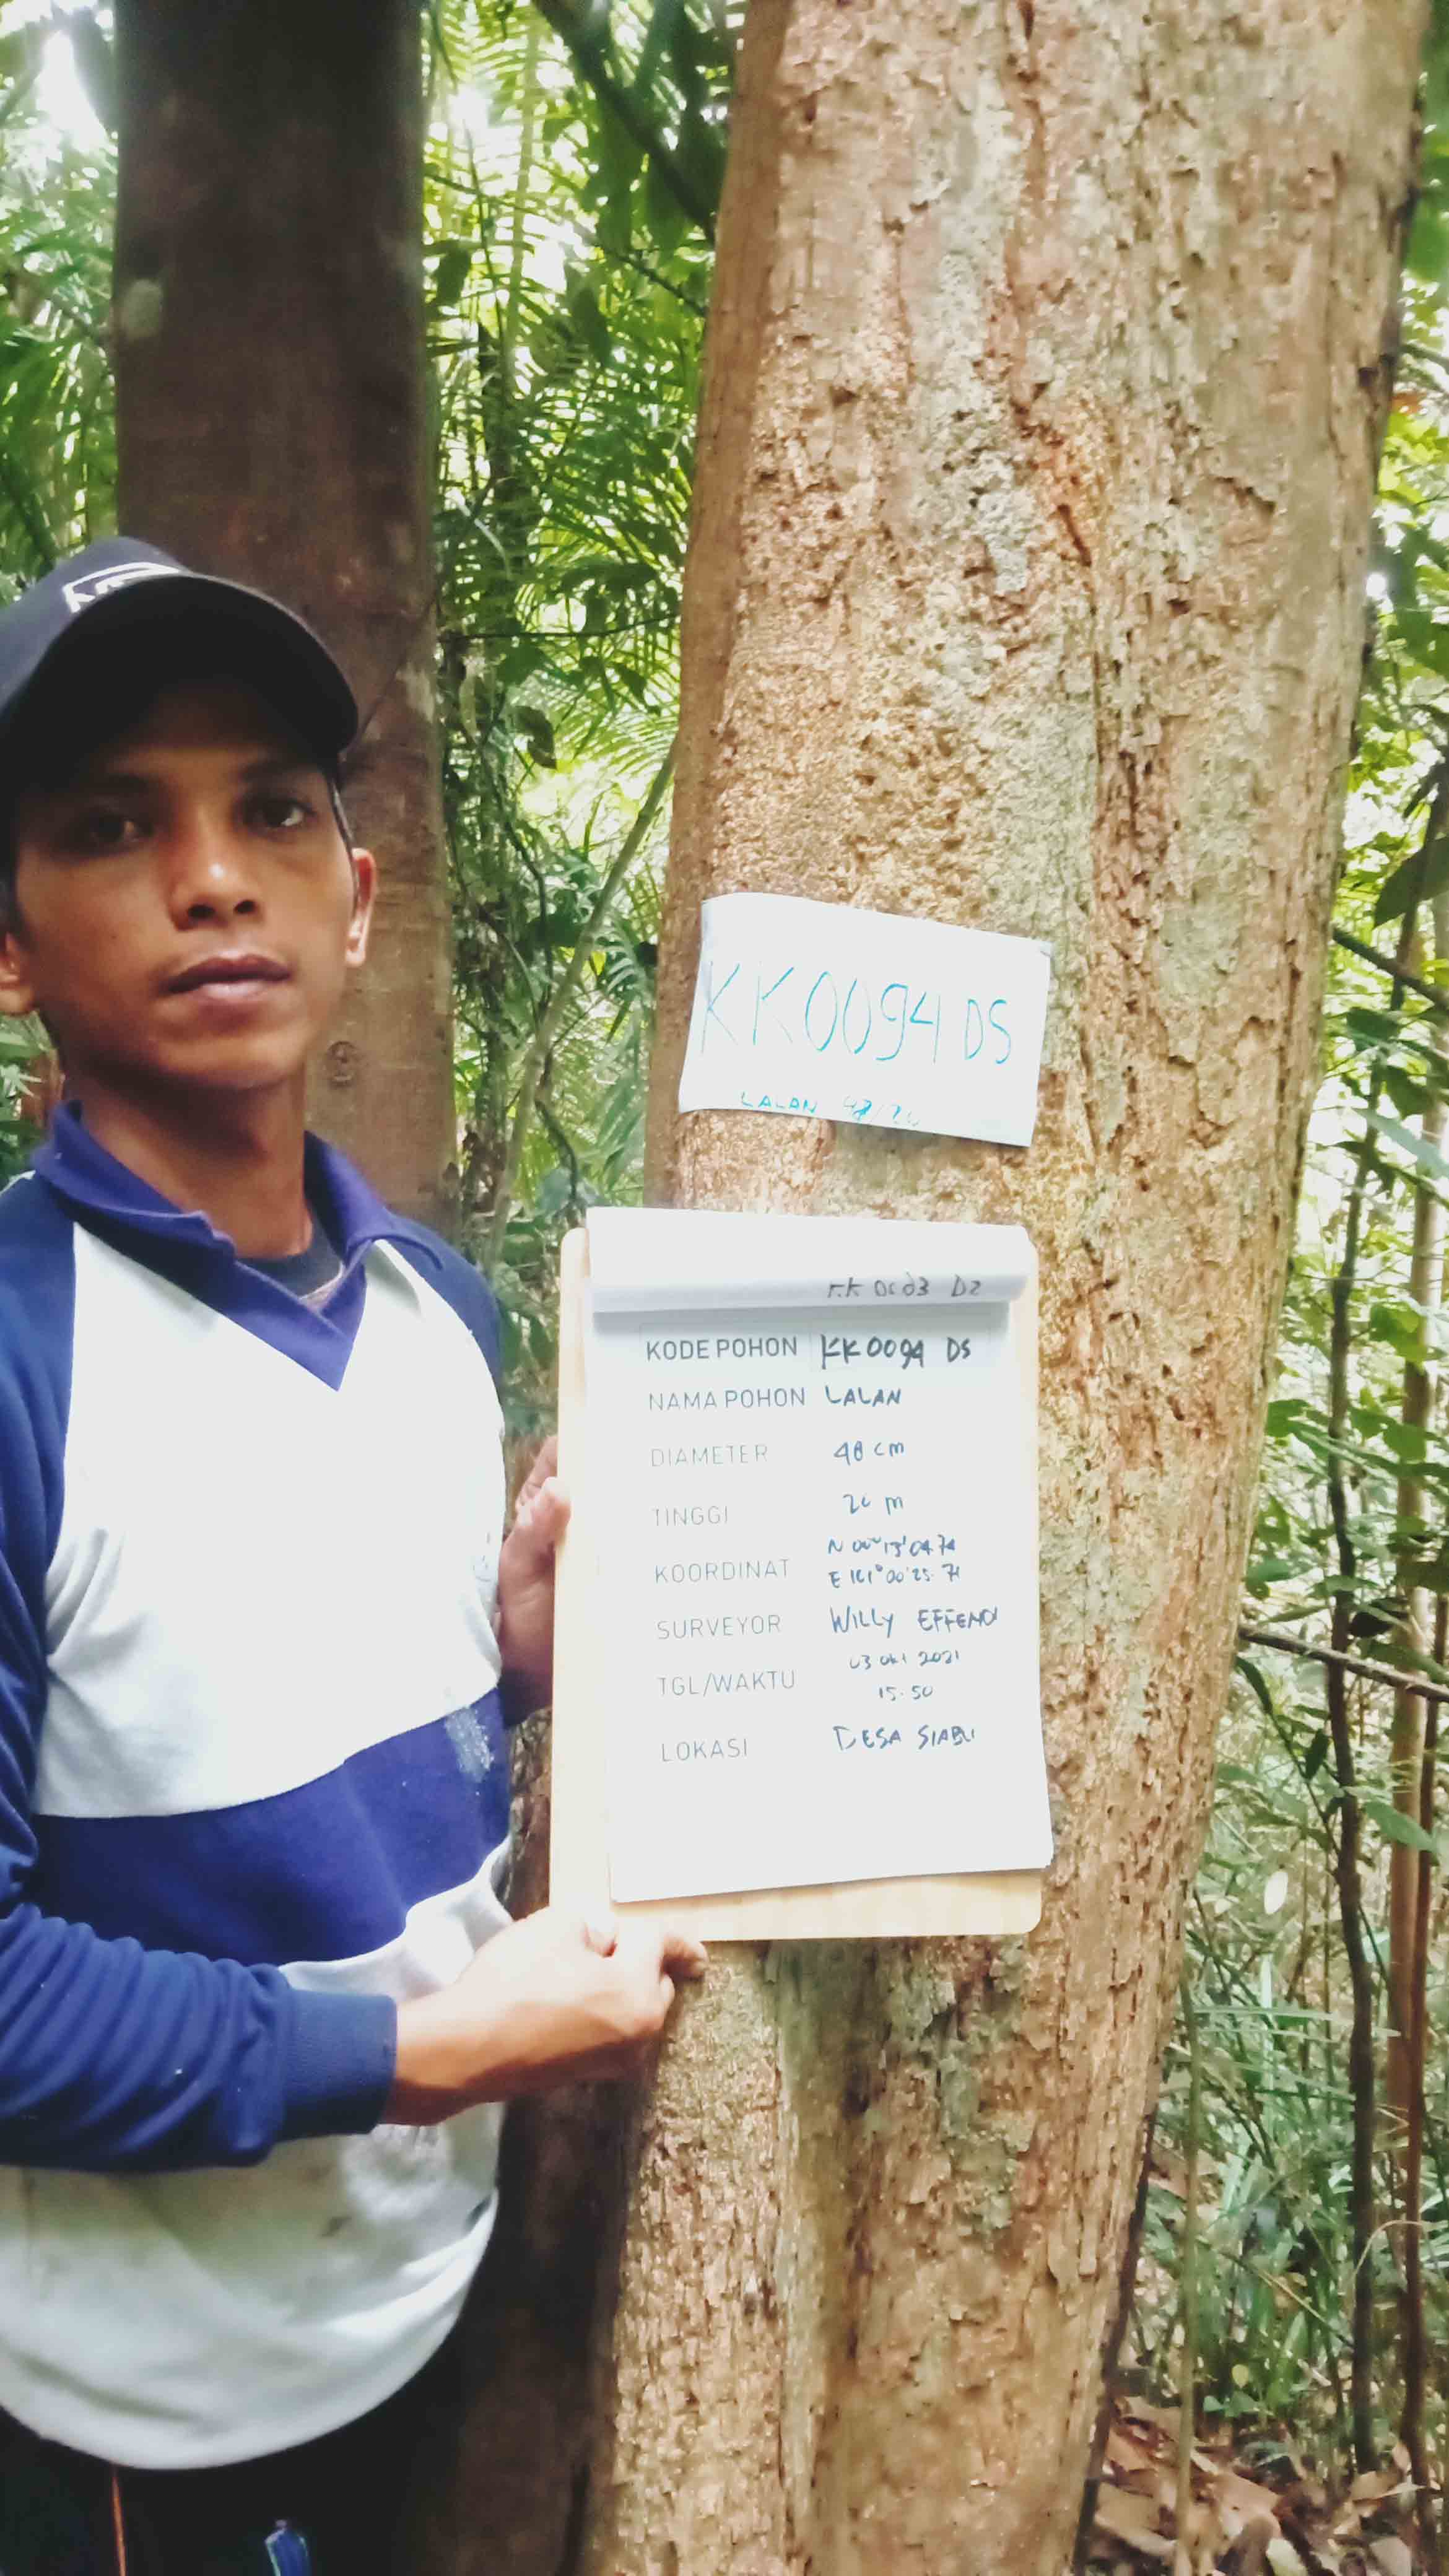 KK0094 DS
LALAN 48/20
KODE POHON KK0094 DS
NAMA POHON LALAN
DIAMETER 48 cm
TINGGI 20 m
KOORDINAT N 00°13'04.74
E 101°00'25.71
SURVEYOR WILLY EFFENDI
TGL/WAKTU 03 Okt 2021
15.50
LOKASI DESA SIABU